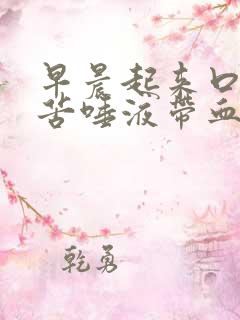 早晨起来口
苦唾液带血
乾勇